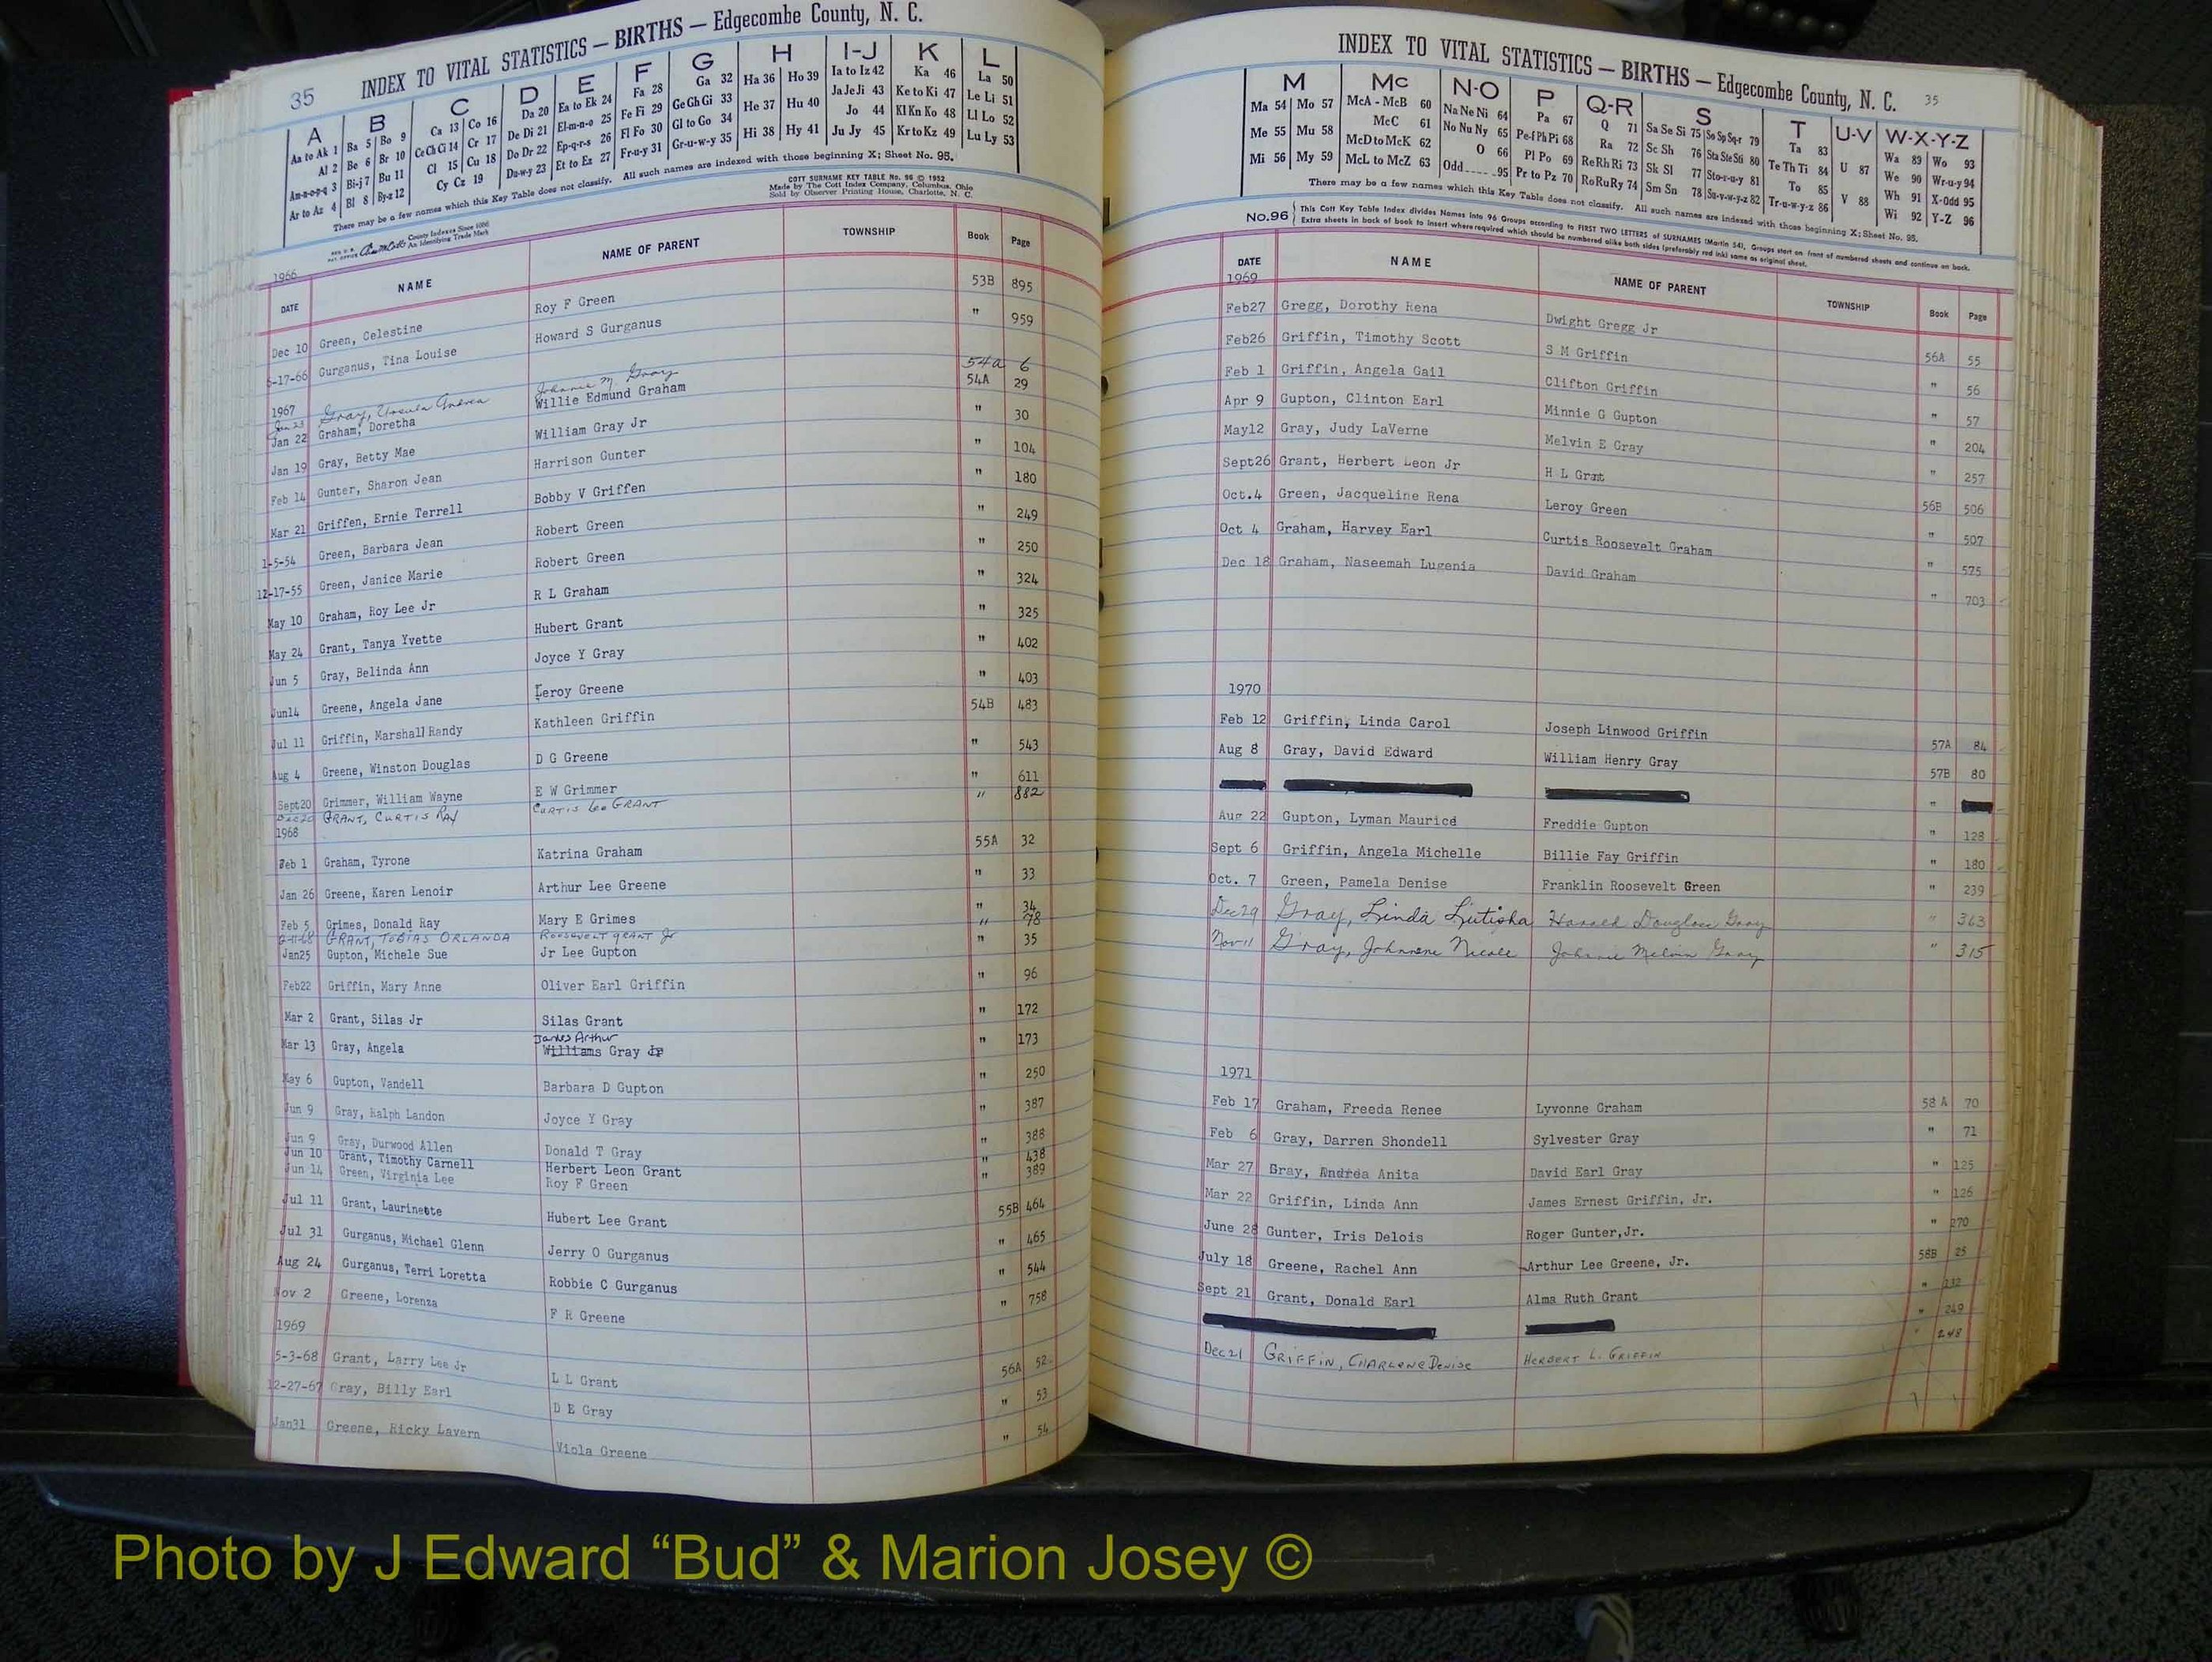 35 INDEX TO VITAL STATISTICS — BIRTHS — Edgecombe County, N. C.
A B C D E F G H I-J K L
Aa to Ak 1 Ba 5 Bo 9 Ca 13 Co 16 Da 20 Ea to Ek 24 Fa 28 Ga 32 Ha 36 Ho 39 Ia to Iz 42 Ka 46 La 50
Al 2 Be 6 Br 10 Ce Ch Ci 14 Cr 17 De Di 21 El-m-n-o 25 Fe Fi 29 Ge Gh Gi 33 He 37 Hu 40 Ja Je Ji 43 Ke to Ki 47 Le Li 51
Am-n-o-p-q 3 Bi-j 7 Bu 11 Cl 15 Cu 18 Do Dr 22 Ep-q-r-s 26 Fl Fo 30 Gl to Go 34 Hi 38 Hy 41 Jo 44 Kl Kn Ko 48 Ll Lo 52
Ar to Az 4 Bl 8 By-z 12 Cy Cz 19 Du-w-y 23 Et to Ez 27 Fr-u-y 31 Gr-u-w-y 35 Ju Jy 45 Kr to Kz 49 Lu Ly 53
There may be a few names which this Key Table does not classify. All such names are indexed with those beginning X; Sheet No. 95.
COTT SURNAME KEY TABLE No. 96 © 1952
Made by The Cott Index Company, Columbus, Ohio
Sold by Observer Printing House, Charlotte, N. C.
County Indexes Since 1888
An Identifying Trade Mark
1966
DATE NAME NAME OF PARENT TOWNSHIP Book Page
Dec 10 Green, Celestine Roy F Green 53B 895
5-17-66 Gurganus, Tina Louise Howard S Gurganus " 959
1967
Jan 23 Gray, Ursula Andrea Johnnie M. Gray 54a 6
Jan 22 Graham, Doretha Willie Edmund Graham 54A 29
Jan 19 Gray, Betty Mae William Gray Jr " 30
Feb 14 Gunter, Sharon Jean Harrison Gunter " 104
Mar 21 Griffen, Ernie Terrell Bobby V Griffen " 180
1-5-54 Green, Barbara Jean Robert Green " 249
12-17-55 Green, Janice Marie Robert Green " 250
May 10 Graham, Roy Lee Jr R L Graham " 324
May 24 Grant, Tanya Yvette Hubert Grant " 325
Jun 5 Gray, Belinda Ann Joyce Y Gray " 402
Jun14 Greene, Angela Jane Leroy Greene " 403
Jul 11 Griffin, Marshall Randy Kathleen Griffin 54B 483
Aug 4 Greene, Winston Douglas D G Greene " 543
Sept20 Grimmer, William Wayne E W Grimmer " 611
Dec 20 GRANT, CURTIS RAY CURTIS Lee GRANT " 882
1968
Feb 1 Graham, Tyrone Katrina Graham 55A 32
Jan 26 Greene, Karen Lenoir Arthur Lee Greene " 33
Feb 5 Grimes, Donald Ray Mary E Grimes " 34
2-11-68 GRANT, TOBIAS ORLANDA ROOSEVELT GRANT Jr " 78
Jan25 Gupton, Michele Sue Jr Lee Gupton " 35
Feb22 Griffin, Mary Anne Oliver Earl Griffin " 96
Mar 2 Grant, Silas Jr Silas Grant " 172
James Arthur
Mar 13 Gray, Angela Williams Gray Jr " 173
May 6 Gupton, Vandell Barbara D Gupton " 250
Jun 9 Gray, Ralph Landon Joyce Y Gray " 387
Jun 9 Gray, Durwood Allen Donald T Gray " 388
Jun 10 Grant, Timothy Carnell Herbert Leon Grant " 438
Jun 14 Green, Virginia Lee Roy F Green " 389
Jul 11 Grant, Laurinette Hubert Lee Grant 55B 464
Jul 31 Gurganus, Michael Glenn Jerry O Gurganus " 465
Aug 24 Gurganus, Terri Loretta Robbie C Gurganus " 544
Nov 2 Greene, Lorenza F R Greene " 758
1969
5-3-68 Grant, Larry Lee Jr L L Grant 56A 52
12-27-67 Gray, Billy Earl D E Gray " 53
Jan31 Greene, Ricky Lavern Viola Greene " 54
INDEX TO VITAL STATISTICS — BIRTHS — Edgecombe County, N. C. 35
M Mc N-O P Q-R S T U-V W-X-Y-Z
Ma 54 Mo 57 McA - McB 60 Na Ne Ni 64 Pa 67 Q 71 Sa Se Si 75 So Sp Sq-r 79 Ta 83 U 87 Wa 89 Wo 93
Me 55 Mu 58 McC 61 No Nu Ny 65 Pe-f Ph Pi 68 Ra 72 Sc Sh 76 Sta Ste Sti 80 Te Th Ti 84 V 88 We 90 Wr-u-y 94
Mi 56 My 59 McD to McK 62 O 66 Pl Po 69 Re Rh Ri 73 Sk Sl 77 Sto-r-u-y 81 To 85 Wh 91 X-Odd 95
McL to McZ 63 Odd 95 Pr to Pz 70 Ro Ru Ry 74 Sm Sn 78 Su-v-w-y-z 82 Tr-u-w-y-z 86 Wi 92 Y-Z 96
There may be a few names which this Key Table does not classify. All such names are indexed with those beginning X; Sheet No. 95.
No.96 This Cott Key Table Index divides Names into 96 Groups according to FIRST TWO LETTERS of SURNAMES (Martin 54). Groups start on front of numbered sheets and continue on back.
Extra sheets in back of book to insert where required which should be numbered alike both sides (preferably red ink) same as original sheet.
DATE NAME NAME OF PARENT TOWNSHIP Book Page
1969
Feb27 Gregg, Dorothy Rena Dwight Gregg Jr 56A 55
Feb26 Griffin, Timothy Scott S M Griffin " 56
Feb 1 Griffin, Angela Gail Clifton Griffin " 57
Apr 9 Gupton, Clinton Earl Minnie G Gupton " 204
May12 Gray, Judy LaVerne Melvin E Gray " 257
Sept26 Grant, Herbert Leon Jr H L Grat 56B 506
Oct.4 Green, Jacqueline Rena Leroy Green " 507
Oct 4 Graham, Harvey Earl Curtis Roosevelt Graham " 575
Dec 18 Graham, Naseemah Lugenia David Graham " 703
1970
Feb 12 Griffin, Linda Carol Joseph Linwood Griffin 57A 84
Aug 8 Gray, David Edward William Henry Gray 57B 80
"
Aug 22 Gupton, Lyman Maurice Freddie Gupton " 128
Sept 6 Griffin, Angela Michelle Billie Fay Griffin " 180
Oct. 7 Green, Pamela Denise Franklin Roosevelt Green " 239
Dec 29 Gray, Linda Lutisha Harold Douglas Gray " 363
Nov 11 Gray, Johnnene Nicole Johnnie Melvin Gray " 315
1971
Feb 17 Graham, Freeda Renee Lyvonne Graham 58 A 70
Feb 6 Gray, Darren Shondell Sylvester Gray " 71
Mar 27 Bray, Andrea Anita David Earl Gray " 125
Mar 22 Griffin, Linda Ann James Ernest Griffin, Jr. " 126
June 28 Gunter, Iris Delois Roger Gunter,Jr. " 270
July 18 Greene, Rachel Ann Arthur Lee Greene, Jr. 58B 25
Sept 21 Grant, Donald Earl Alma Ruth Grant " 232
" 249
Dec 21 GRIFFIN, CHARLENE Denise HERBERT L. GRIFFIN " 248
Photo by J Edward “Bud” & Marion Josey ©